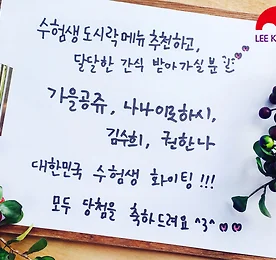 수험생 도시락 메뉴 추천하고,
달달한 간식 받아가실 분들
가을공쥬, 나나이모하시,
김수희, 권한나
대한민국 수험생 화이팅!!!
모두 당첨을 축하드려요 ^3^
LEE K